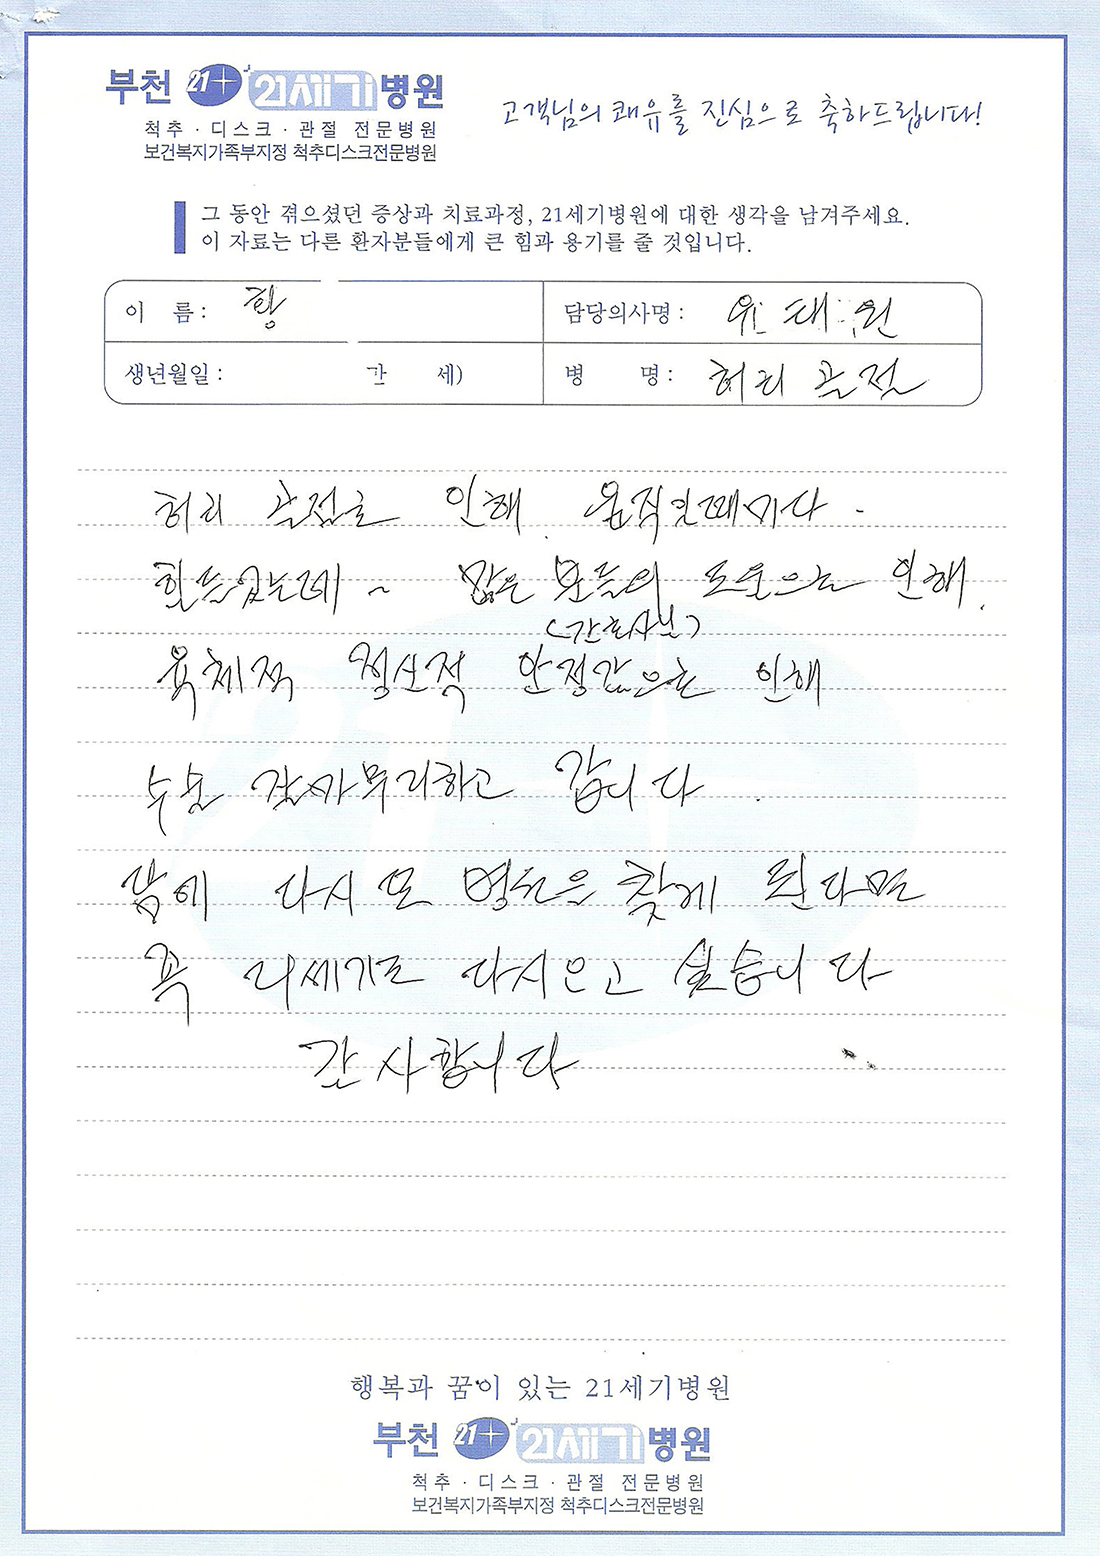 부천 21+ 21세기병원
척추 · 디스크 · 관절 전문병원
보건복지가족부지정 척추디스크전문병원
고객님의 쾌유를 진심으로 축하드립니다!
그 동안 겪으셨던 증상과 치료과정, 21세기병원에 대한 생각을 남겨주세요.
이 자료는 다른 환자분들에게 큰 힘과 용기를 줄 것입니다.
이 름 : 황
담당의사명 : 유 태 원
생년월일 : 간 세)
병 명 : 허리 관절
허리 관절로 인해 움직일때마다
힘들었는데 ~ 많은 분들의 도움으로 인해
(간호사님)
육체적 정신적 안정감으로 인해
수술 잘 마무리하고 갑니다
다시 또 병원을 찾게 된다면
꼭 21세기로 다시오고 싶습니다
감사합니다
행복과 꿈이 있는 21세기병원
부천 21+ 21세기병원
척추 · 디스크 · 관절 전문병원
보건복지가족부지정 척추디스크전문병원